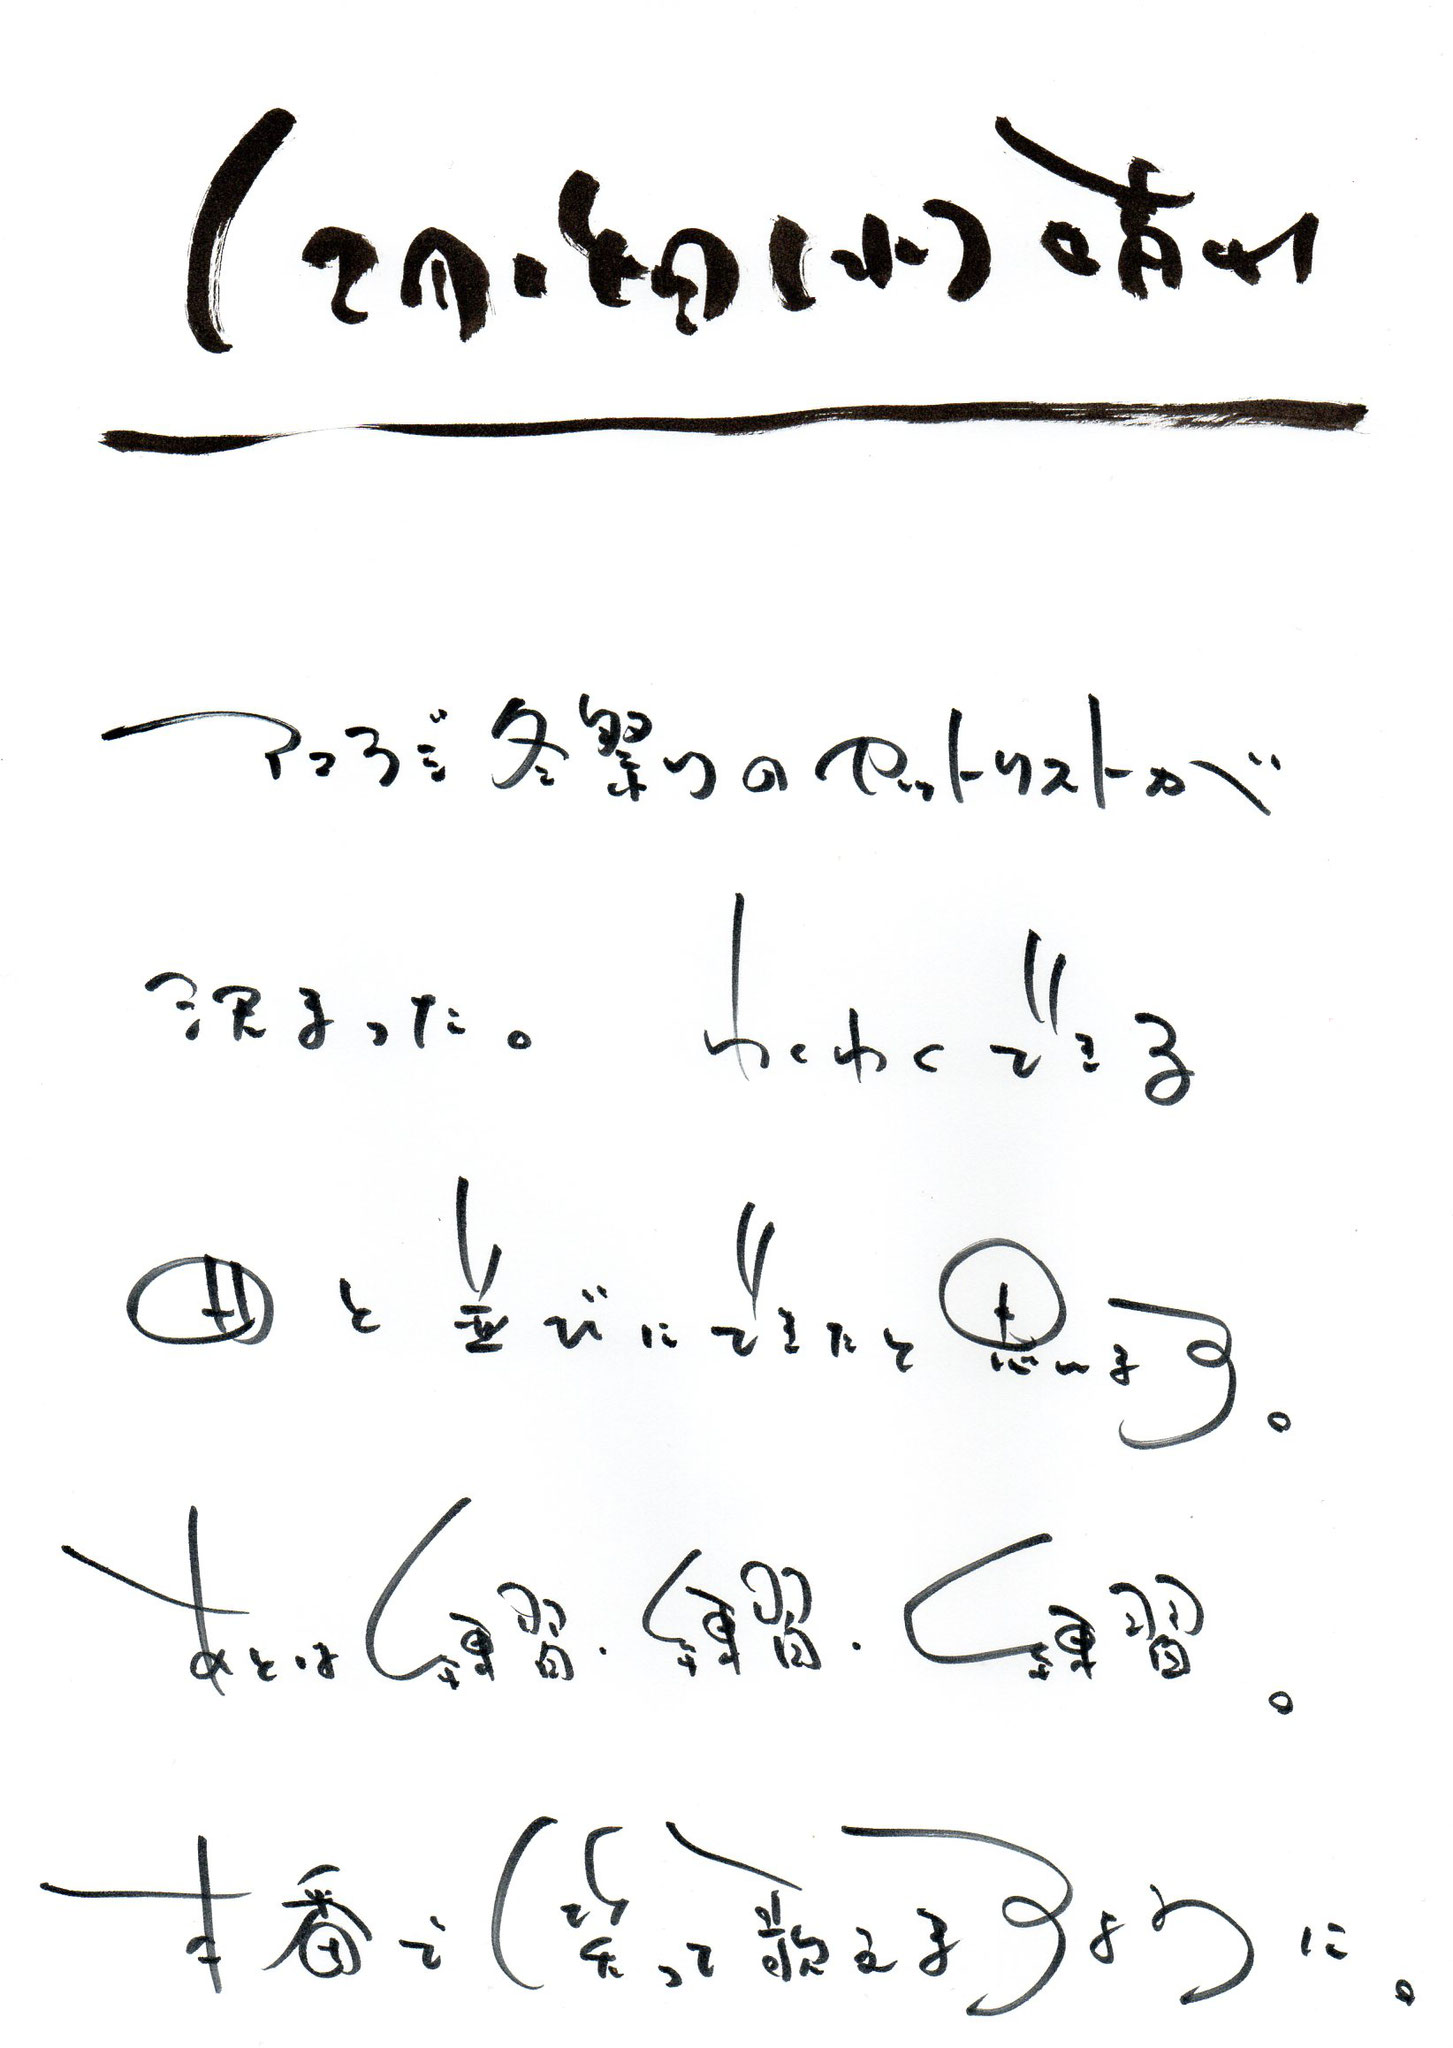 12月・七日(水)晴れ
アコラジ冬祭りのセットリストが
決まった。 わくわくできる
曲と並びにできたと思います。
あとは練習・練習・練習。
本番で笑って歌えますように。